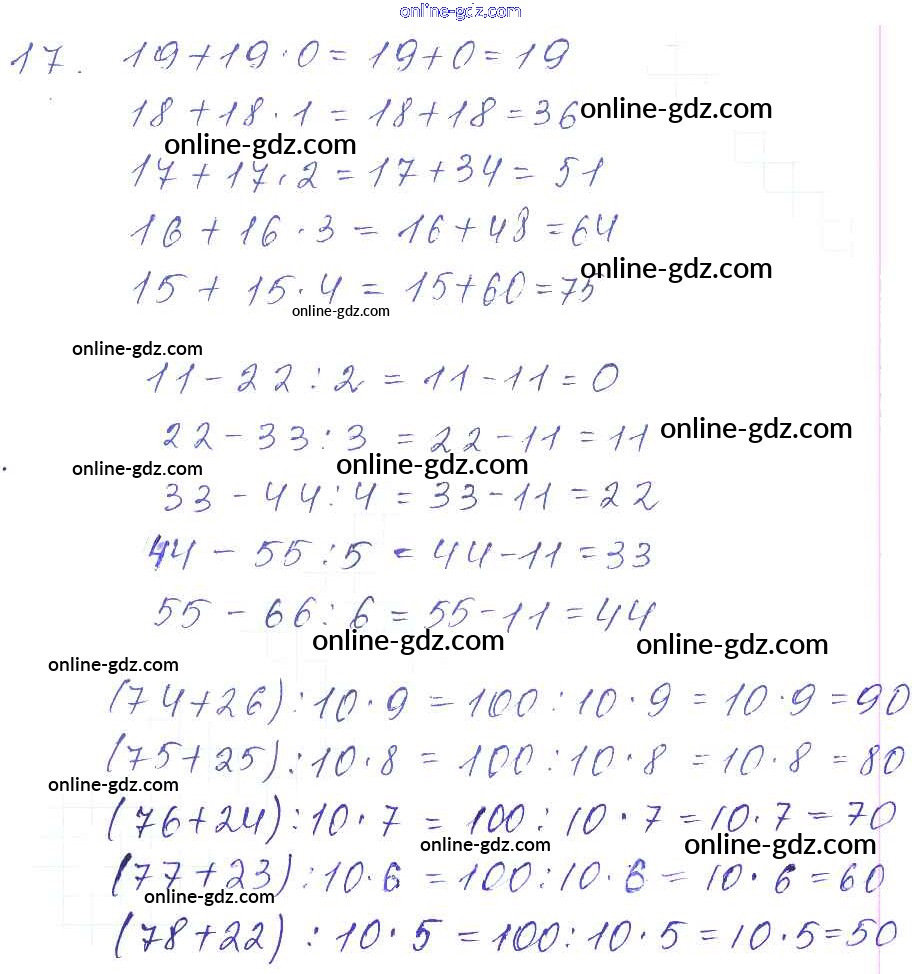 online-gdz.com
17. 19 + 19 · 0 = 19 + 0 = 19
18 + 18 · 1 = 18 + 18 = 36
online-gdz.com
online-gdz.com
17 + 17 · 2 = 17 + 34 = 51
16 + 16 · 3 = 16 + 48 = 64
online-gdz.com
15 + 15 · 4 = 15 + 60 = 75
online-gdz.com
online-gdz.com
11 - 22 : 2 = 11 - 11 = 0
22 - 33 : 3 = 22 - 11 = 11
online-gdz.com
online-gdz.com
online-gdz.com
33 - 44 : 4 = 33 - 11 = 22
44 - 55 : 5 = 44 - 11 = 33
55 - 66 : 6 = 55 - 11 = 44
online-gdz.com
online-gdz.com
online-gdz.com
(74 + 26) : 10 · 9 = 100 : 10 · 9 = 10 · 9 = 90
(75 + 25) : 10 · 8 = 100 : 10 · 8 = 10 · 8 = 80
online-gdz.com
(76 + 24) : 10 · 7 = 100 : 10 · 7 = 10 · 7 = 70
online-gdz.com
online-gdz.com
(77 + 23) : 10 · 6 = 100 : 10 · 6 = 10 · 6 = 60
online-gdz.com
(78 + 22) : 10 · 5 = 100 : 10 · 5 = 10 · 5 = 50